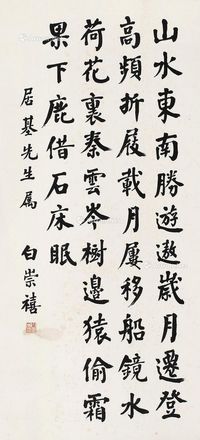 山水東南勝遊遨歲月遷登
高頻折屐載月屢移船鏡水
荷花裏秦雲岑樹邊猿偷霜
果下鹿借石床眠
居基先生属
白崇禧